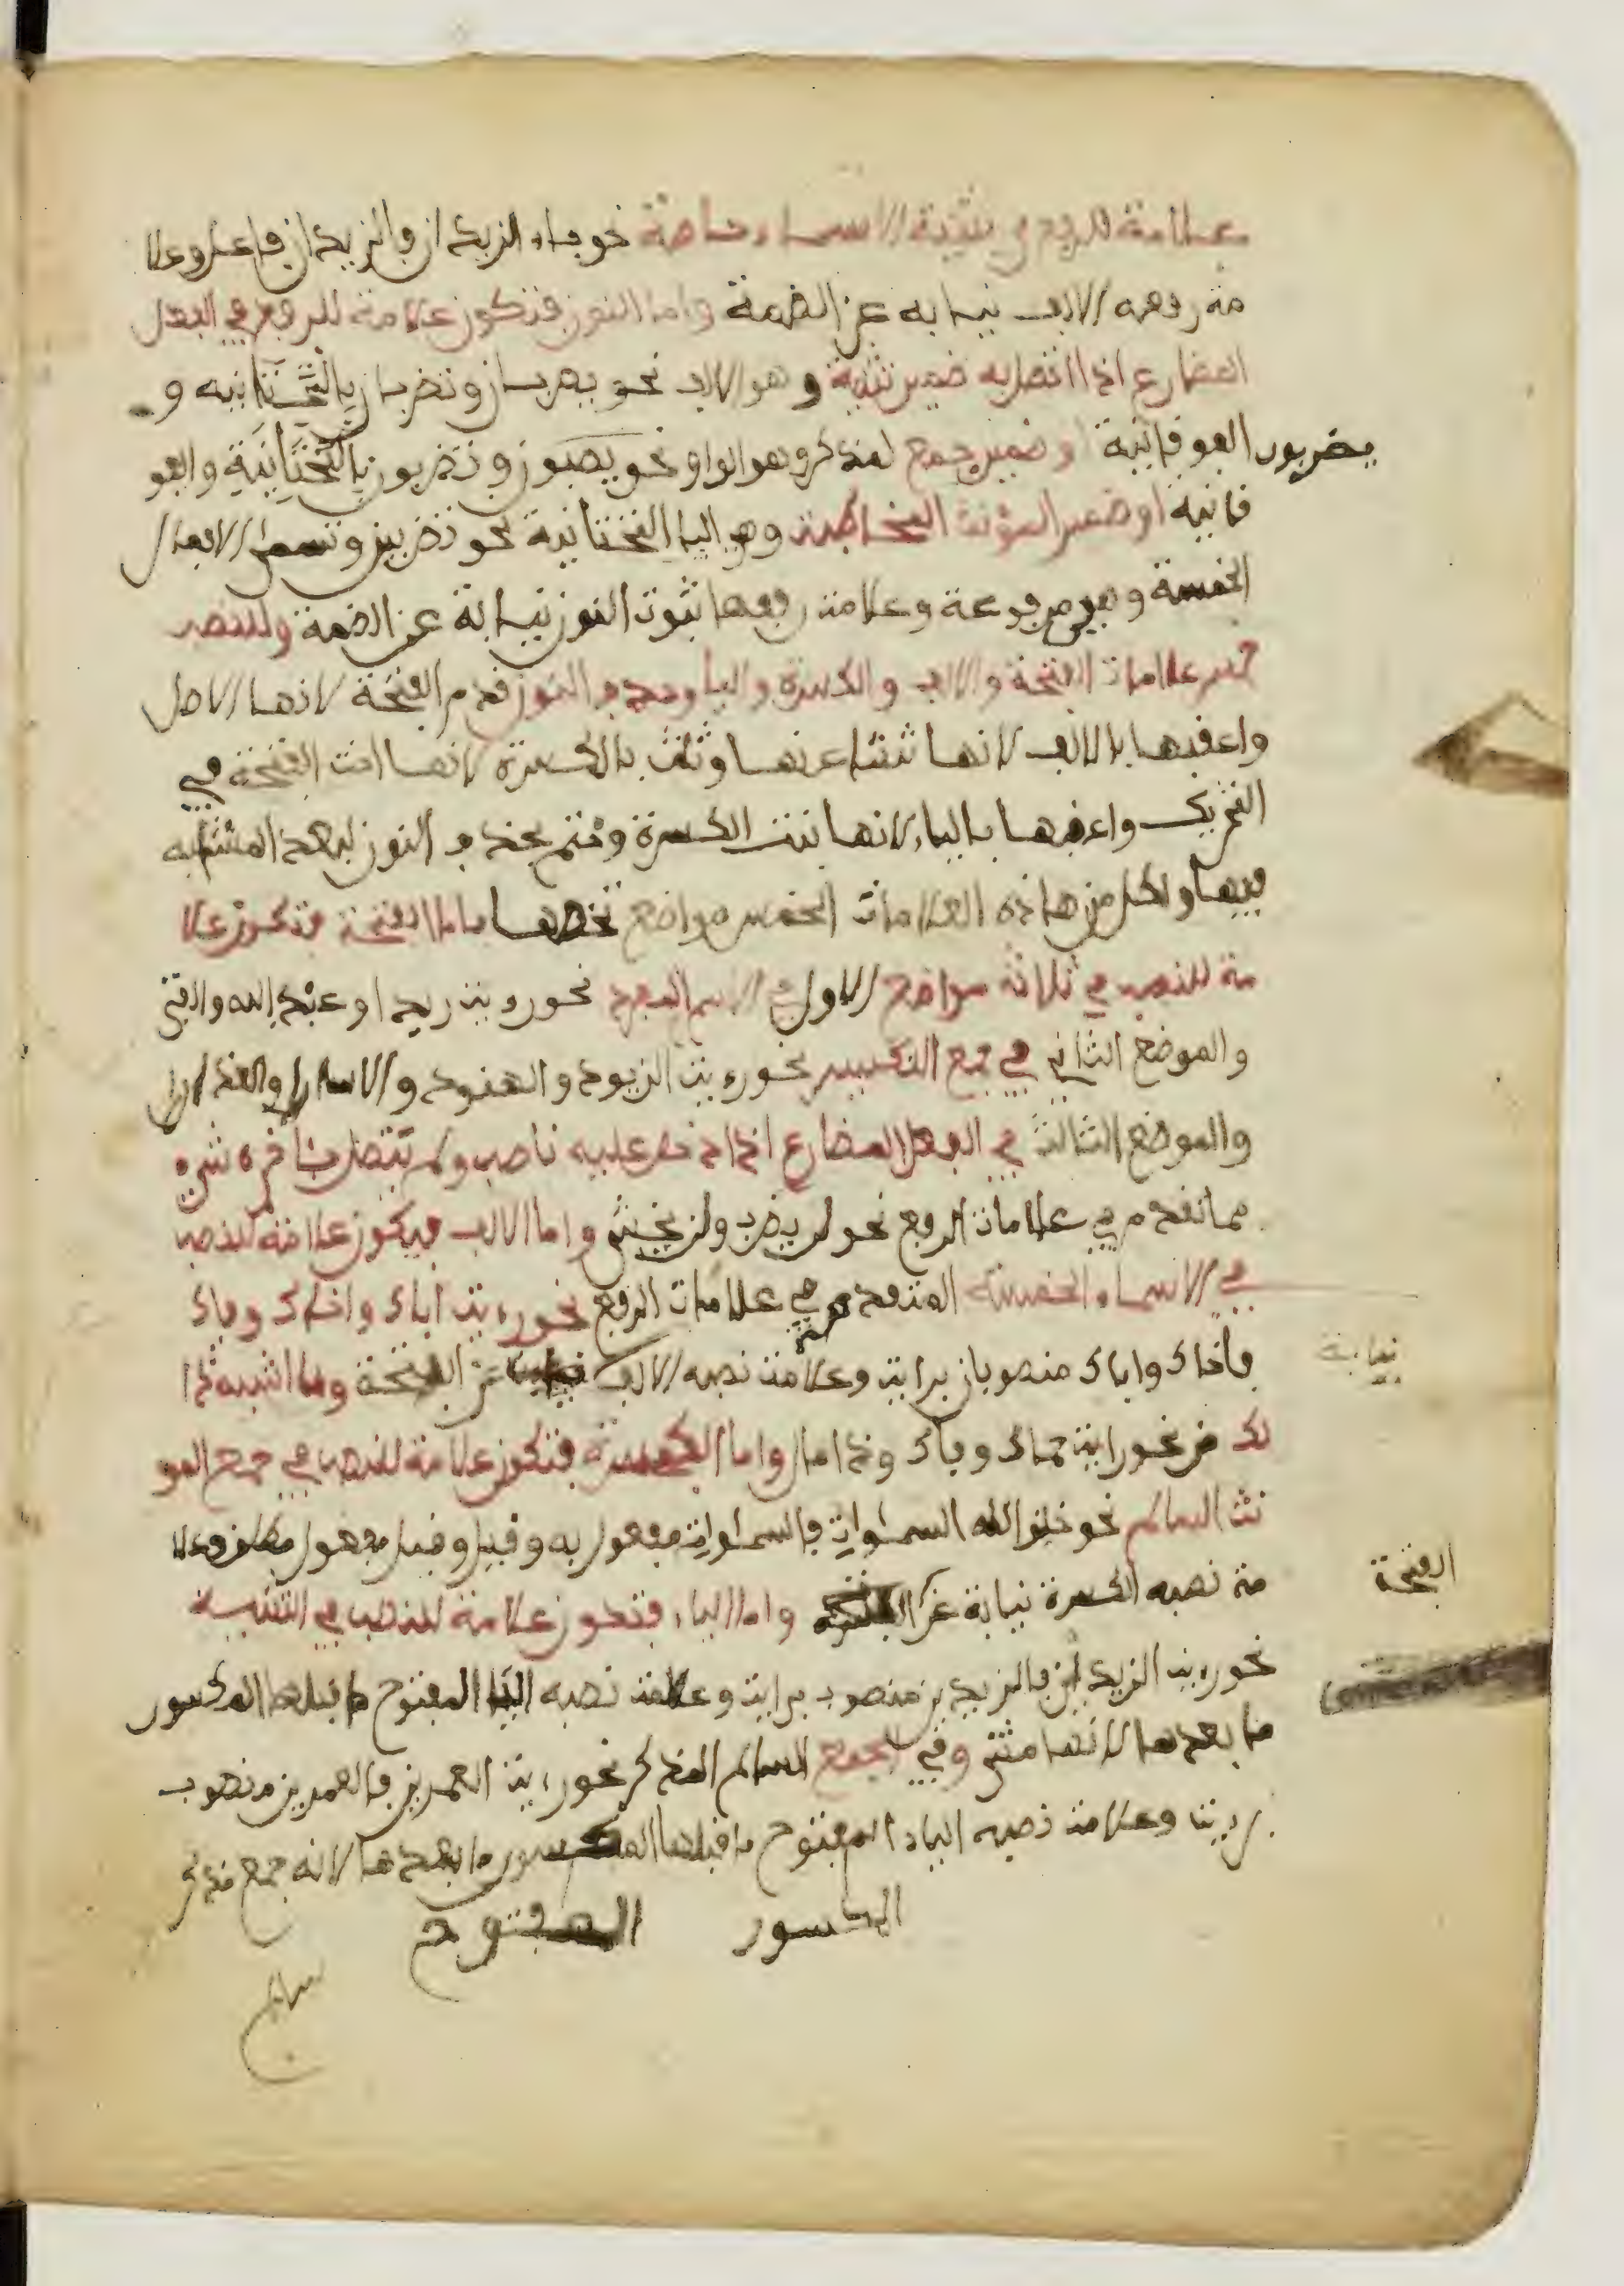 علامة للرفع في تثنية الاسماء خاصة نحو جاء الزيدان فالزيدان فاعل وعلا
مة رفعه الالف نيابه عن الضمة واما النون فتكون علامة للرفع في الفعل
المضارع اذا اتصل به ضمير تثنية وهو الالف نحو يضربان وتضربان بالتحتانيه و
الفوقانية او ضمير جمع لمذكر وهو الواو نحو وتضربون بالتحتانية والفو
يضربون
قانيه او ضمير المؤنث المخاطبة وهي الياء التحتانية نحو تضربين وتسمى الافعال
الخمسة وهي مرفوعة وعلامة رفعها ثبوت النون نيابة عن الضمة وللنصب
خمس علامات الفتحة والالف والكسرة والياء وحذف النون قدم الفتحة لانها الاصل
واعقبها بالالف لانها تنشا عنها وثلث بالكسرة لانها اخت الفتحة في
التحريك واعقبها بالياء لانها بنت الكسرة وختم بحذف النون لبعد المشابه
فيها ولكل من هاذه العلامات الخمس مواضع تخصها فاما الفتحة فتكون علا
مة للنصب في ثلاثة مواضع الاول في الاسم المفرد نحو رءيت زيدا وعبد الله والفتى
والموضع الثاني في جمع التكسير نحو رءيت الزيود والهنود والاسارا والعذارا
والموضع الثالث في الفعل المضارع اذا دخل عليه ناصب ولم يتصل بئاخره شيء
مما تقدم في علامات الرفع نحو لن يضرب ولن يخشى واما الالف فيكون علامة للنصب
في الاسماء الخمسة المتقدمة في علامات الرفع نحو رءيت اباك واخاك وفاك
فاخاك واباك منصوبان برايت وعلامة نصبه الالف عن الفتحة وما اشبه ذا
نيابة
لك من نحو رايت حماك وفاك وذا مال واما الكسرة فتكون علامة للنصب في جمع المو
نث السالم نحو خلق الله السموات فالسموات مفعول به وقيل مفعول مطلق وعلا
مة نصبه الكسرة نيابة عن واما الياء فتكون علامة للنصب في التثنية
الفتحة
نحو رءيت الزيدين فالزيدين منصوب برايت وعلامة نصبه الياء المفتوح ما قبلها المكسور
ما بعدها لانها مثنى وفي الجمع السالم المذكر نحو رءيت العمرين فالعمرين منصوب
برءيت وعلامة نصبه الياء المفتوح ما قبلها المكسور ما بعدها لانه جمع مذكر
المكسور المفتوح
سالم